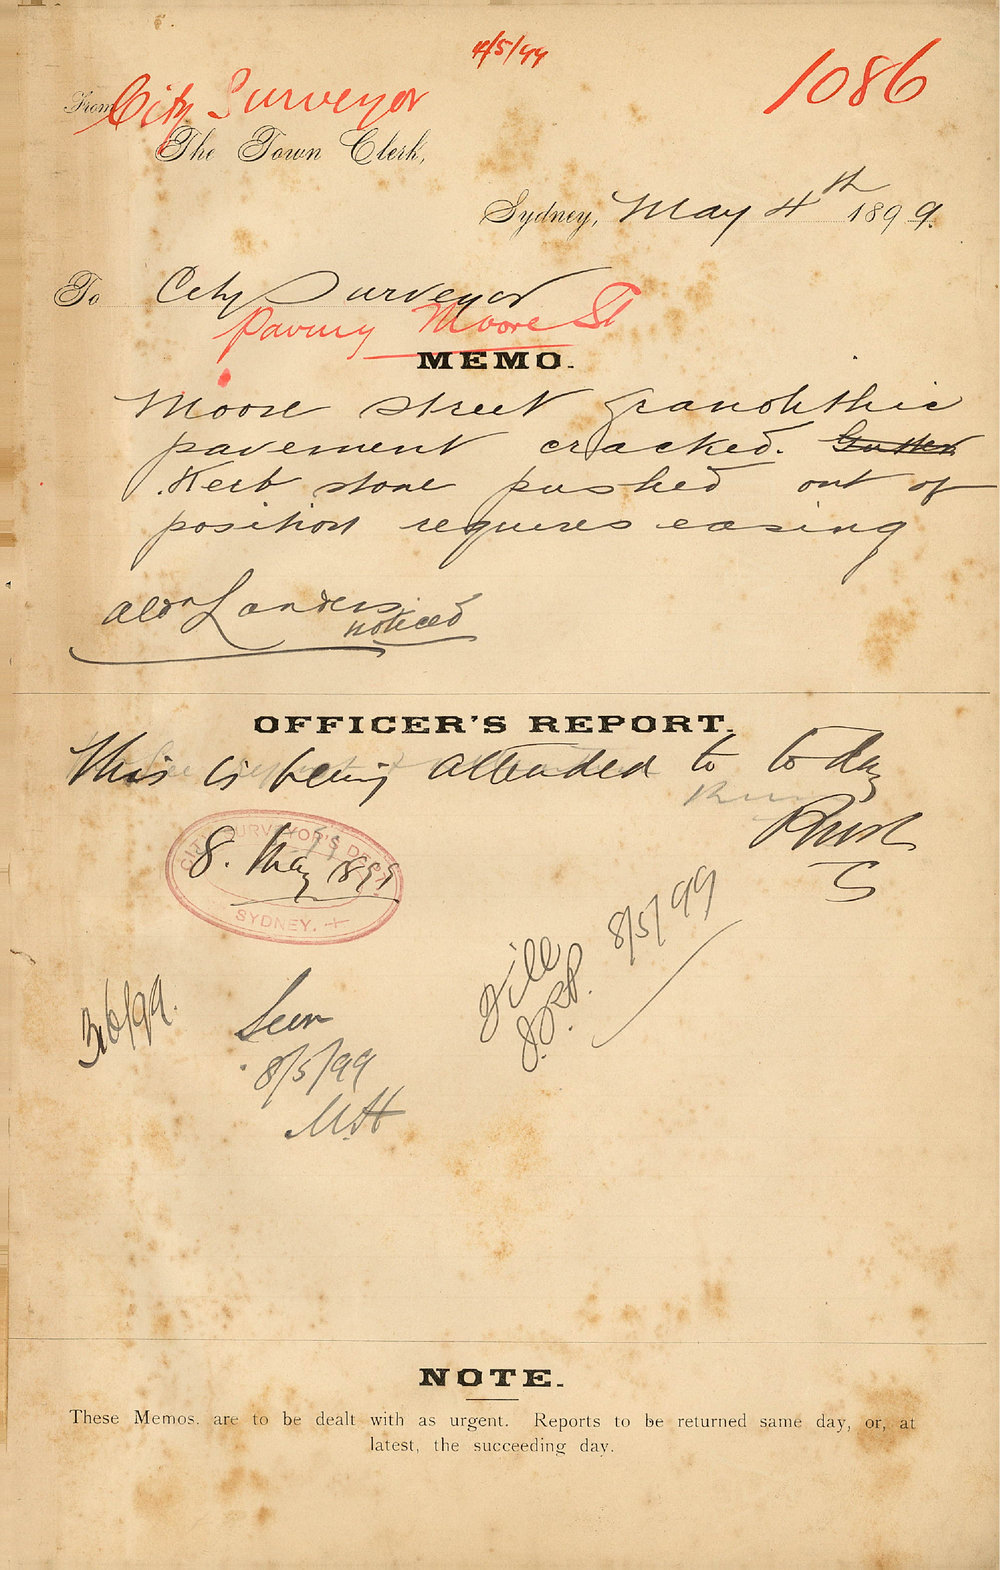 4/5/99
1086
From City Surveyor
The Town Clerk,
Sydney, May 4th 1899.
To City Surveyor
Paving Moore St
MEMO.
Moore street granolithic
pavement cracked. Gutter
Kerb stone pushed out of
position requires easing
Aldn Landers
noticed
OFFICER'S REPORT.
This is being attended to to day
CITY SURVEYOR'S DEPT.
8. May 1899
SYDNEY.
CS
File 8/5/99
3/6/99.
Seen
8/5/99
M.H
NOTE.
These Memos. are to be dealt with as urgent. Reports to be returned same day, or, at
latest, the succeeding day.